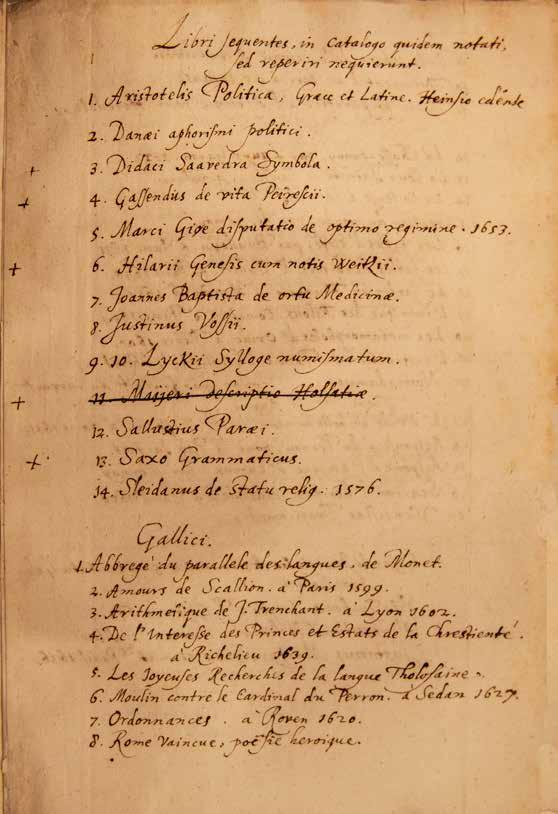 Libri sequentes, in catalogo quidem notati,
sed reperiri nequierunt.
1. Aristotelis Politica, Græce et Latine. Heinsio edente
2. Danæi aphorismi politici.
+ 3. Didaci Saavedra Symbola.
+ 4. Gassendus de vita Peirescii.
5. Marci Gipe disputatio de optimo regimine. 1653.
+ 6. Hilarii Genesis cum notis Weitzii.
7. Joannes Baptista de ortu Medicinæ.
8. Justinus Vossii.
9. 10. Lyckii Sylloge numismatum.
+ 11. Meijeri descriptio Holsatiæ.
12. Sallustius Paræi.
+ 13. Saxo Grammaticus.
14. Sleidanus de statu relig. 1576.
Gallici.
1. Abbregé du parallele des langues, de Monet.
2. Amours de Scallion. à Paris 1599.
3. Arithmetique de J. Trenchant. à Lyon 1602.
4. De l'Interesse des Princes et Estats de la Chrestienté.
à Richelieu 1639.
5. Les Joyeuses Recherches de la langue Tholosaine.
6. Moulin contre le Cardinal du Perron. à Sedan 1627.
7. Ordonnances. à Roven 1620.
8. Rome Vaincue, poësie heroique.